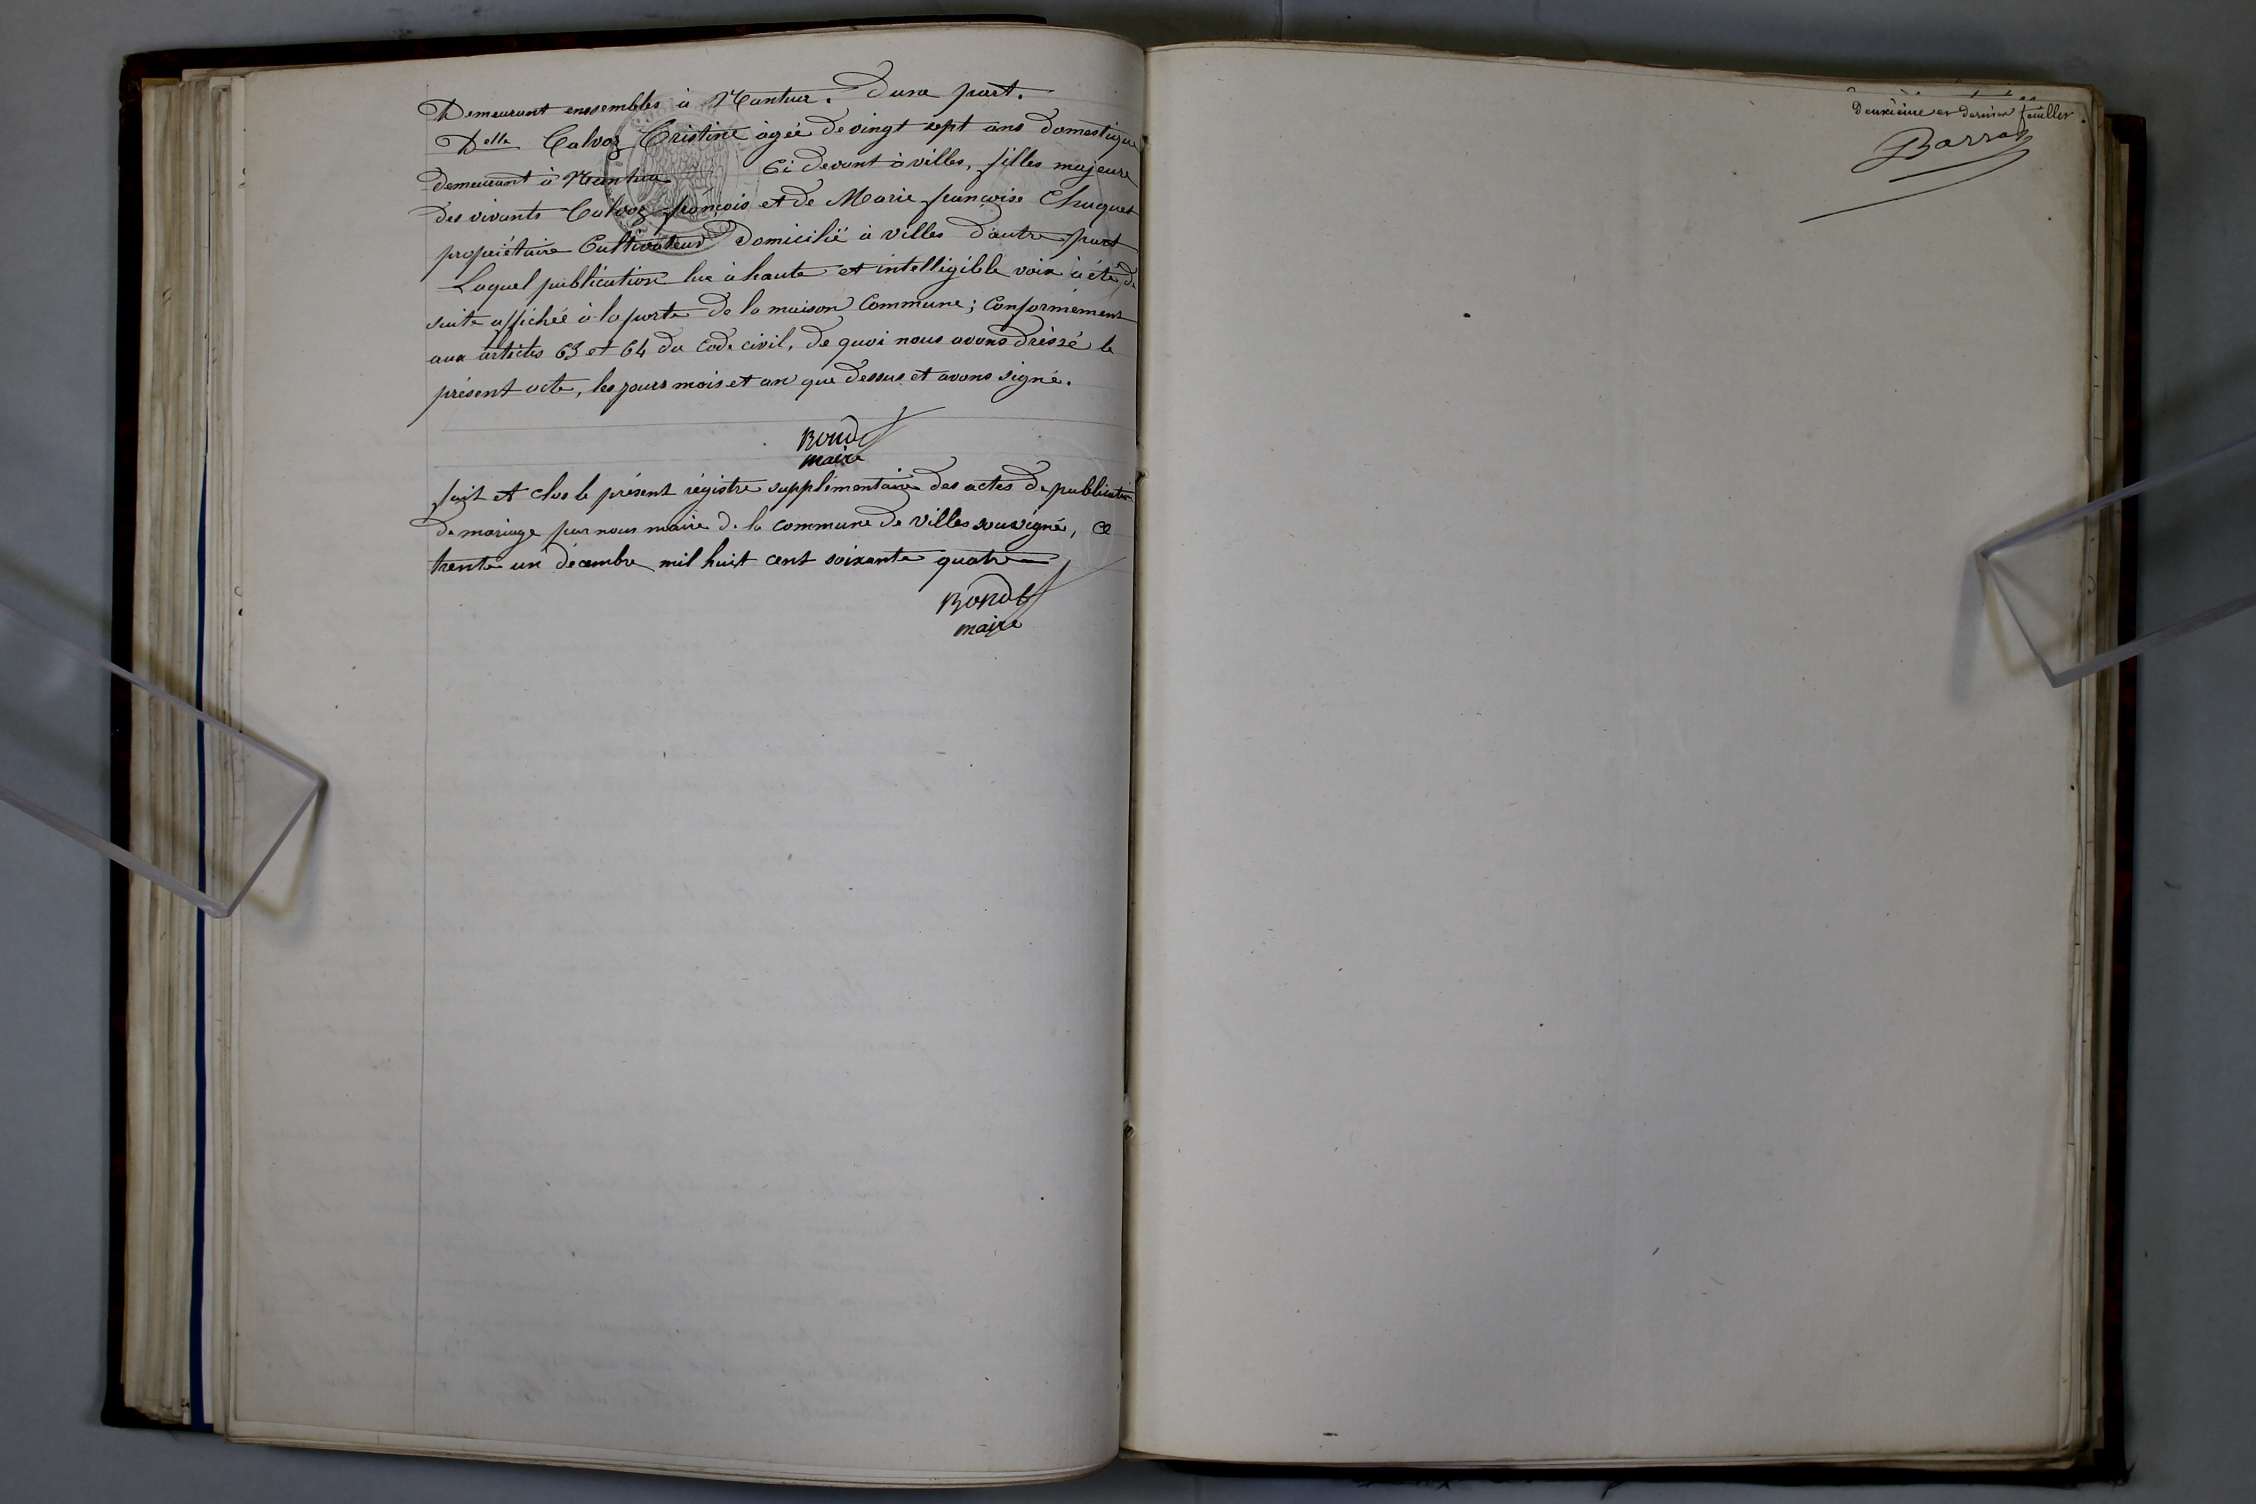 Demeurant enssembles à Nantua. D'une part.
Delle Calvoz Cristine âgée de vingt sept ans domestique
demeurant à Nantua Ci devant à villes, filles majeure
des vivants Calvoz françois et de Marie françoise Chuquet
propriétaire Cultivateur Domicilié à villes d'autre part
Laquel publication lue à haute et intelligible voix à été de
suite affichée à la porte de la maison Commune; Conformément
aux articles 63 et 64 du Code civil, de quoi nous avons dréssé le
présent acte, les jours mois et an que dessus et avons signé.
maire
fait et clos le présent régistre supplémentaire des actes de publication
de mariage par nous maire de la commune de villes sousigné, ce
trente un décembre mil huit cent soixante quatre
maire
Deuxième et dernier feuillet.